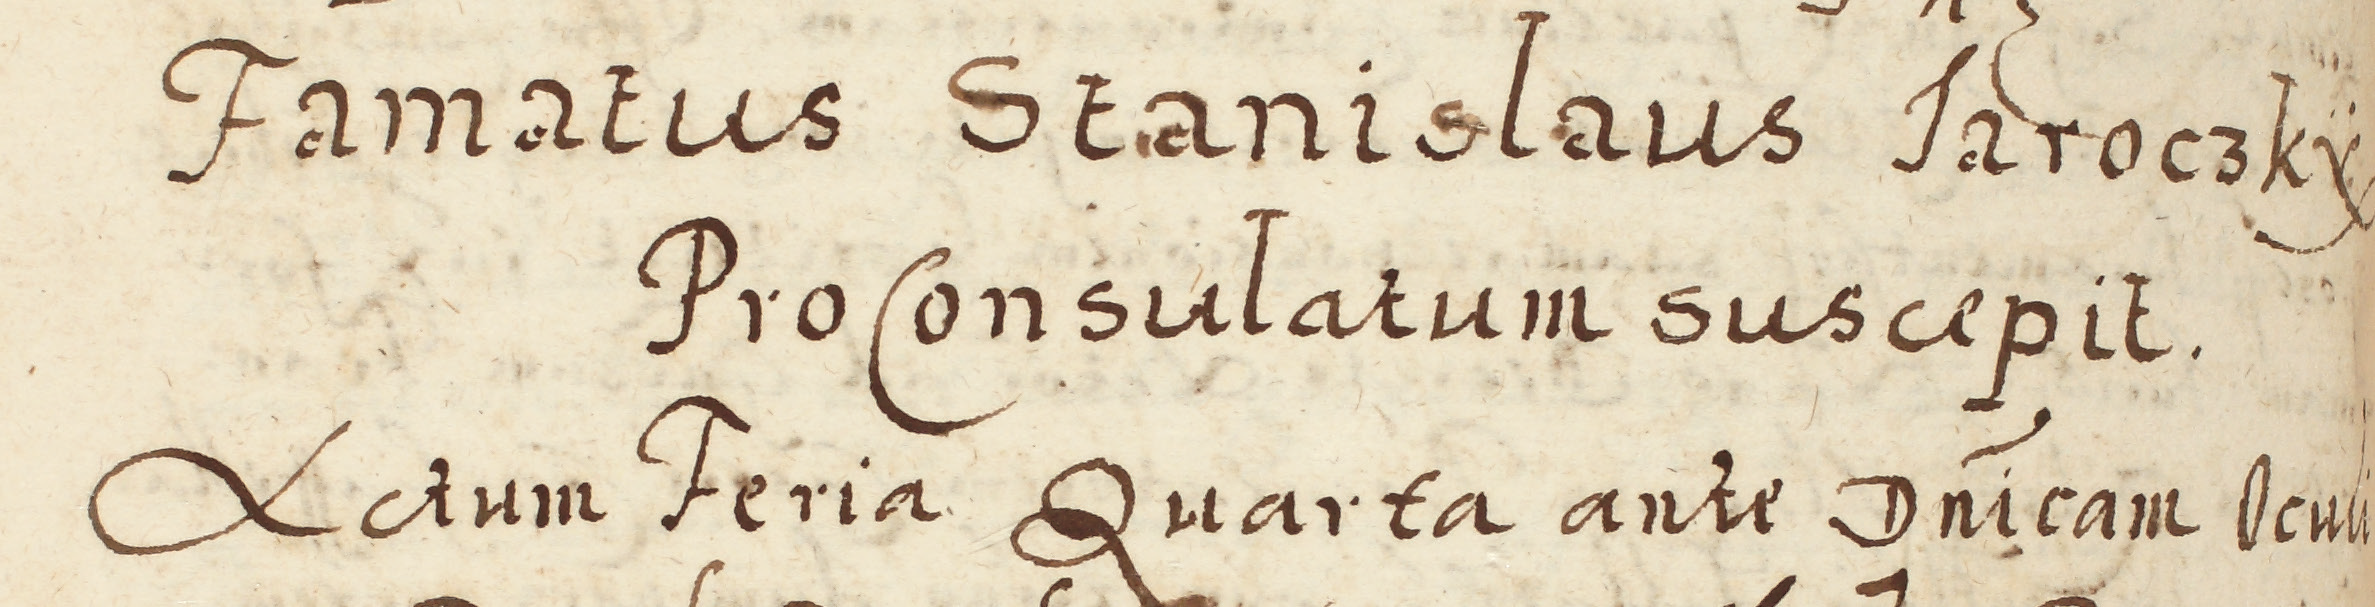 Famatus Stanislaus Jaroczkÿ
ProConsulatum suscepit.
Actum Feria Quarta ante Dnicam Oculi